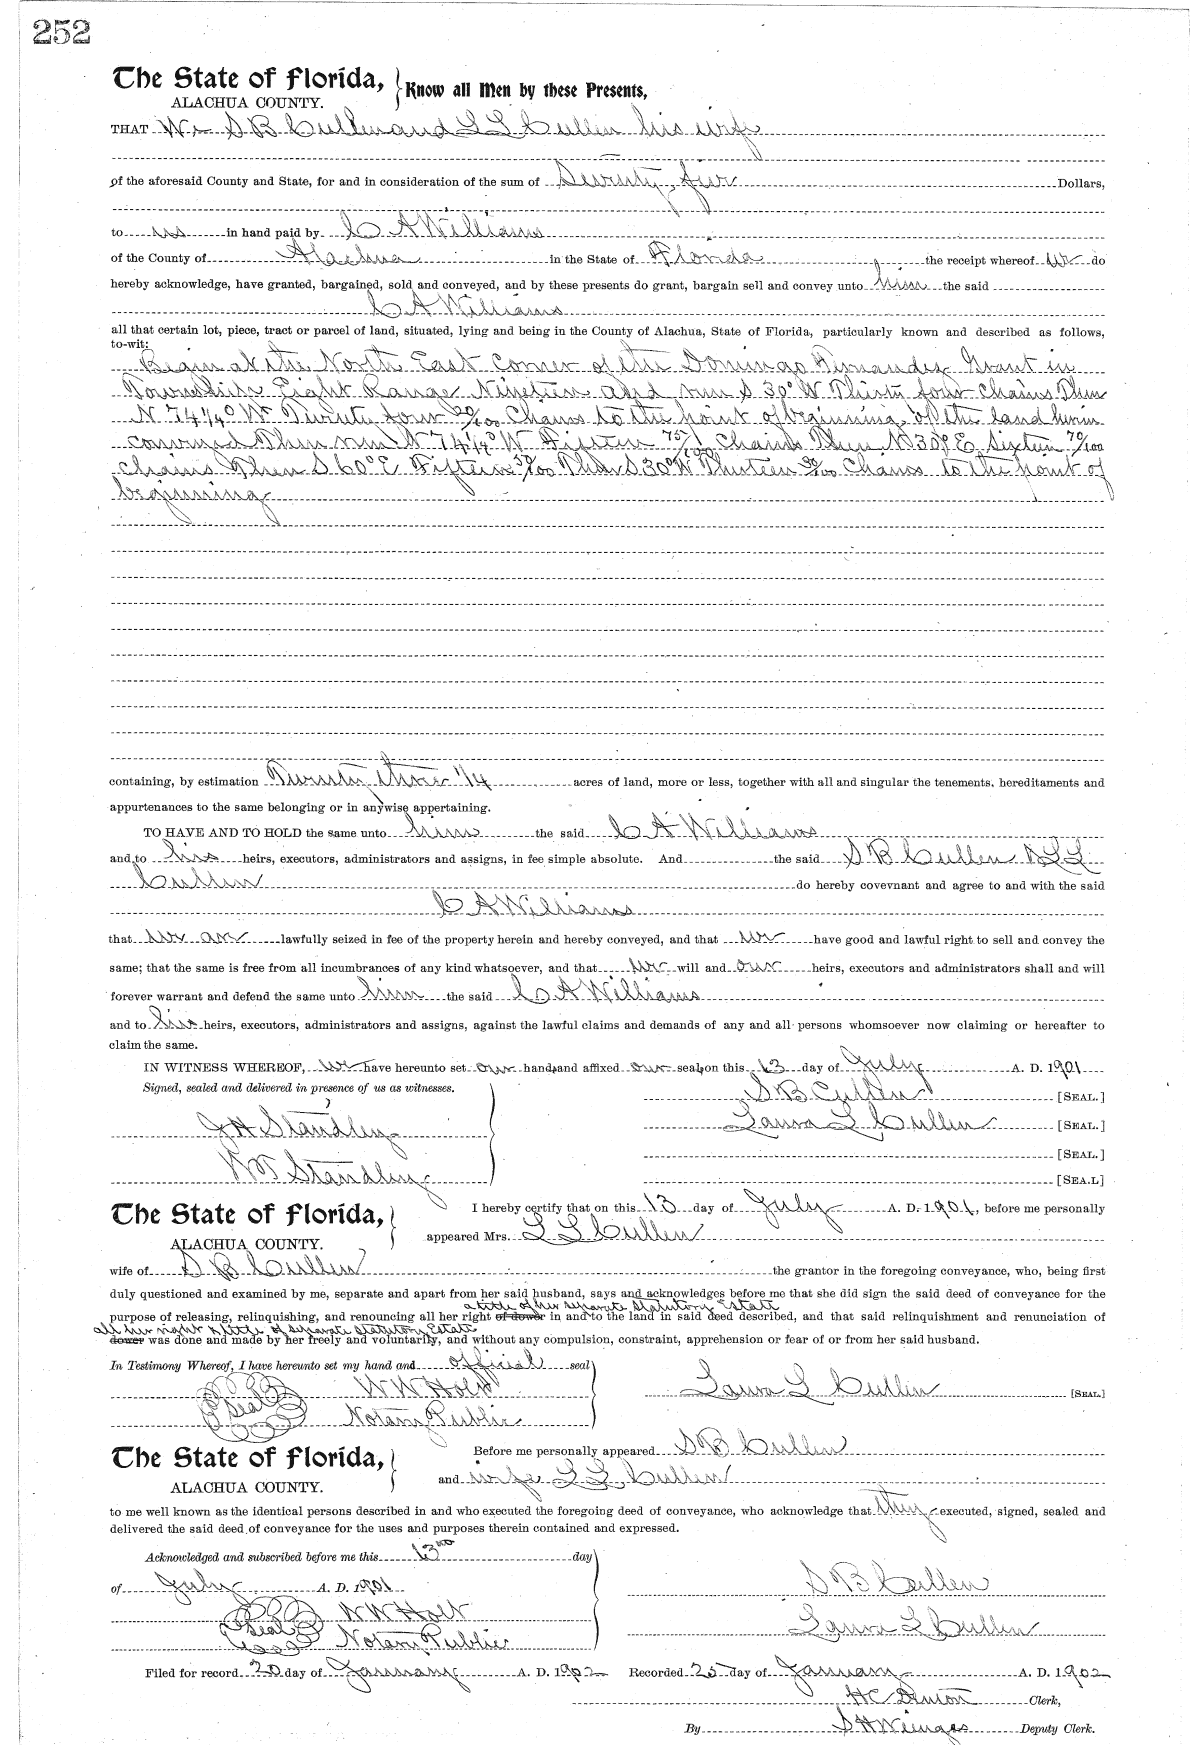 252
The State of Florida,
ALACHUA COUNTY.
Know all Men by these Presents,
THAT We S B Cullen and L L Cullen his wife
of the aforesaid County and State, for and in consideration of the sum of Seventy five Dollars,
to us in hand paid by C A Williams
of the County of Alachua in the State of Florida the receipt whereof we do
hereby acknowledge, have granted, bargained, sold and conveyed, and by these presents do grant, bargain sell and convey unto him the said
C A Williams
all that certain lot, piece, tract or parcel of land, situated, lying and being in the County of Alachua, State of Florida, particularly known and described as follows,
to-wit:
Begin at the North East Corner of the Domingo Fernandes Grant in
Township Eight Range Nineteen and run S 30° W Thirty four Chains Then
N 74 1/4° W Twenty four /100 Chains to the point of beginning of the land herein
conveyed Then run N 74 1/4° W Fifteen 75/100 Chains Then N 30° E Sixteen 70/100
Chains Then S 60° E Fifteen 50/100 Then S 30° W Thirteen /100 Chains to the point of
beginning
containing, by estimation Twenty three 1/4 acres of land, more or less, together with all and singular the tenements, hereditaments and
appurtenances to the same belonging or in anywise appertaining.
TO HAVE AND TO HOLD the same unto him the said C A Williams
and to his heirs, executors, administrators and assigns, in fee simple absolute. And the said S B Cullen & L L
Cullen do hereby covevnant and agree to and with the said
C A Williams
that we are lawfully seized in fee of the property herein and hereby conveyed, and that we have good and lawful right to sell and convey the
same; that the same is free from all incumbrances of any kind whatsoever, and that we will and our heirs, executors and administrators shall and will
forever warrant and defend the same unto him the said C A Williams
and to his heirs, executors, administrators and assigns, against the lawful claims and demands of any and all persons whomsoever now claiming or hereafter to
claim the same.
IN WITNESS WHEREOF, we have hereunto set our hands and affixed our seals on this 13 day of July A. D. 1901
Signed, sealed and delivered in presence of us as witnesses.
S B Cullen [SEAL.]
J H Standley
Laura L Cullen [SEAL.]
[SEAL.]
W T Standley
[SEA.L]
The State of Florida,
ALACHUA COUNTY.
I hereby certify that on this 13 day of July A. D. 1901, before me personally
appeared Mrs. L L Cullen
wife of S B Cullen the grantor in the foregoing conveyance, who, being first
duly questioned and examined by me, separate and apart from her said husband, says and acknowledges before me that she did sign the said deed of conveyance for the
& title of her separate Statutory Estate
purpose of releasing, relinquishing, and renouncing all her right of dower in and to the land in said deed described, and that said relinquishment and renunciation of
all her right & title of separate Statutory Estate
dower was done and made by her freely and voluntarily, and without any compulsion, constraint, apprehension or fear of or from her said husband.
In Testimony Whereof, I have hereunto set my hand and official seal
Seal W W Holt
Laura L Cullen [SEAL]
Notary Public
The State of Florida,
ALACHUA COUNTY.
Before me personally appeared S B Cullen
and wife L L Cullen
to me well known as the identical persons described in and who executed the foregoing deed of conveyance, who acknowledge that they executed, signed, sealed and
delivered the said deed of conveyance for the uses and purposes therein contained and expressed.
Acknowledged and subscribed before me this 13 day
of July A. D. 1901
S B Cullen
Seal W W Holt
Laura L Cullen
Notary Public
Filed for record 20 day of January A. D. 1902 Recorded 25 day of January A. D. 1902
H C Denton Clerk,
By S H Wienges Deputy Clerk.